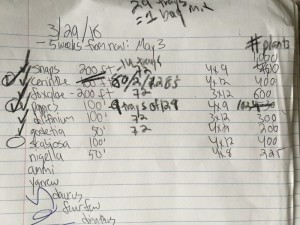 29 trays
= 1 bag mix
3/29/16
- 5 weeks from now: May 3
# plants
snaps 200 ft 72 4x9
cerinthe 100 ft 50/2/72 4x12 400
foxglove - 200 ft 72 3x12 600
poppy 100' 9 trays of 128 4x9
delfinium 100' 72 3x12 300
godetia 50' 72 4x9 200
scabiosa 100' 4x12 400
nigella 50' 4x8 225
ammi
yarrow
daucus
feverfew
dianthus